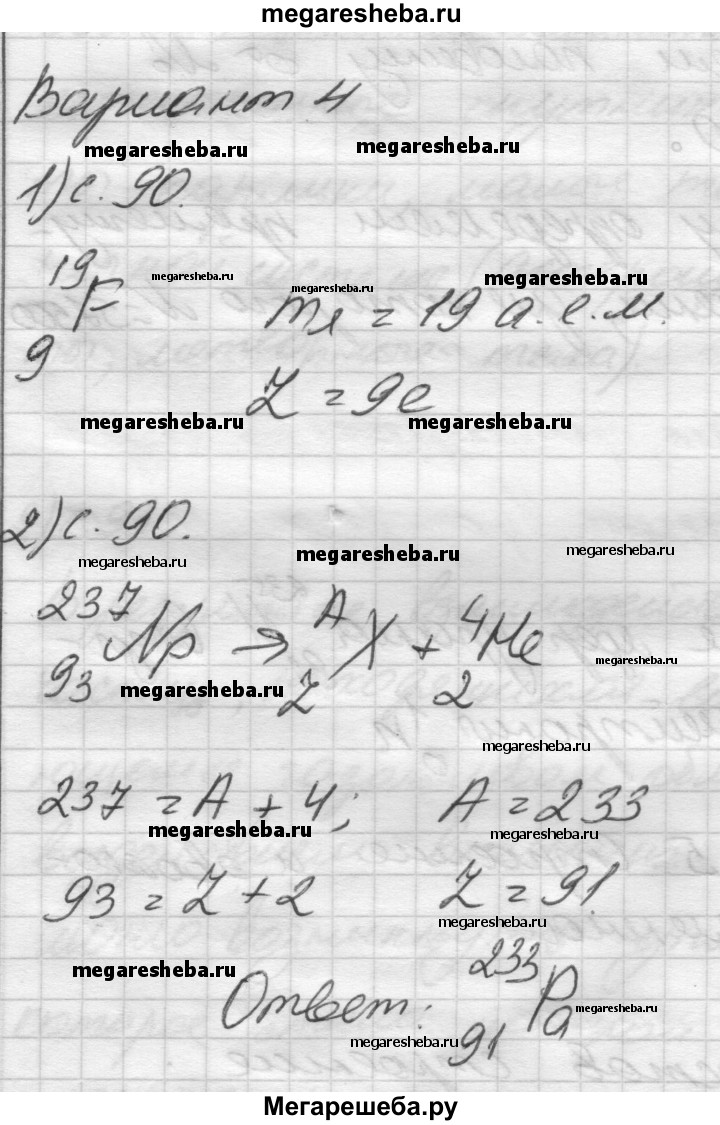 megaresheba.ru
Вариант 4
megaresheba.ru megaresheba.ru
1) с. 90.
megaresheba.ru megaresheba.ru megaresheba.ru
19
F mя = 19 а.е.м.
9
Z = 9e
megaresheba.ru megaresheba.ru
2) с. 90.
megaresheba.ru megaresheba.ru megaresheba.ru
237 A 4
Np → X + He
93 Z 2
megaresheba.ru megaresheba.ru
megaresheba.ru
237 = A + 4; A = 233
megaresheba.ru megaresheba.ru
93 = Z + 2 Z = 91.
megaresheba.ru
megaresheba.ru
233
Ответ: Pa
91
megaresheba.ru megaresheba.ru
Мегарешеба.ру